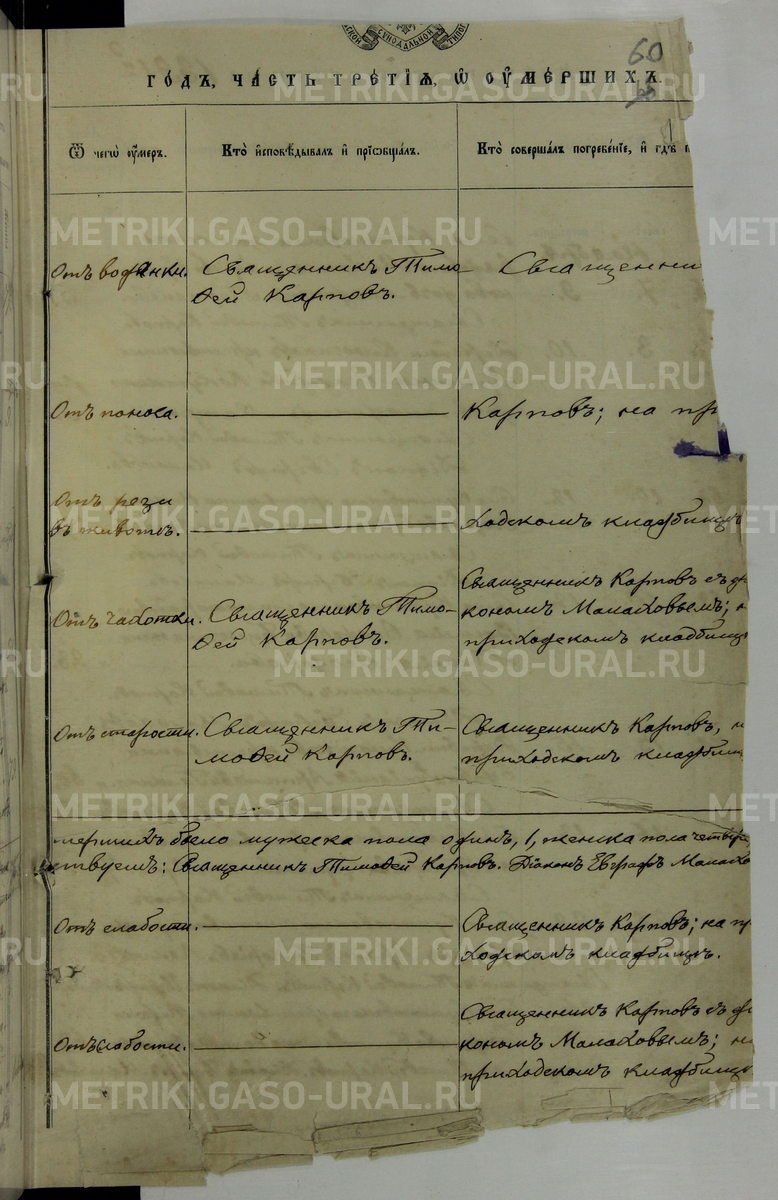 СѴНОДАЛЬНОЙ
60
го́дъ, ча́сть тре́тїѧ, ѡ҆ ᲂу҆ме́ршихъ.
Ѿ чегѡ̀ ᲂу҆́меръ.
Кто̀ и҆сповѣ́дывалъ и҆ прїѡбща́лъ.
Кто̀ соверша́лъ погребе́нїе, и҆ гдѣ̀
Отъ водянки.
Священникъ Тимо-
ѳей Карповъ.
Священни
Отъ поноса.
Карповъ; на пр
Отъ рези
въ животѣ.
ходскомъ кладбищѣ
Отъ чахотки.
Священникъ Тимо-
ѳей Карповъ.
Священникъ Карповъ съ діа
кономъ Малаховымъ; н
приходскомъ кладбищѣ
Отъ старости.
Священникъ Ти-
моѳей Карповъ.
Священникъ Карповъ, н
приходскомъ кладбищ
мершихъ было мужеска пола одинъ, 1, женска пола четыре
ствуемъ: Священникъ Тимоѳей Карповъ. Діаконъ Евграфъ Малахо
Отъ слабости.
Священникъ Карповъ; на пр
ходскомъ кладбищѣ.
Отъ слабости.
Священникъ Карповъ съ діа
кономъ Малаховымъ; на
приходскомъ кладбищѣ
METRIKI.GASO-URAL.RU